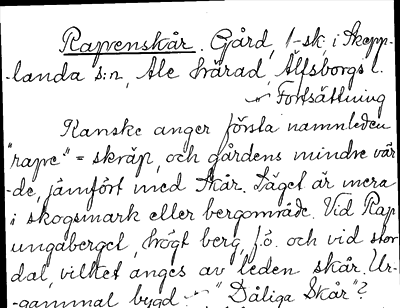 Rapenskår. Gård, 1-sk, i Skepp-
-landa s:n, Ale härad, Älfsborgs l.
Fortsättning
Kanske anger första namnleden
"rape" = skräp, och gårdens mindre vär-
-de, jämfört med Skår. Läget är mera
i skogsmark eller bergområde. Vid Rap
ungaberget, högt berg, f.ö. och vid stor
dal, vilket anges av leden skår. Ur-
-gammal bygd "Dåliga Skår"?